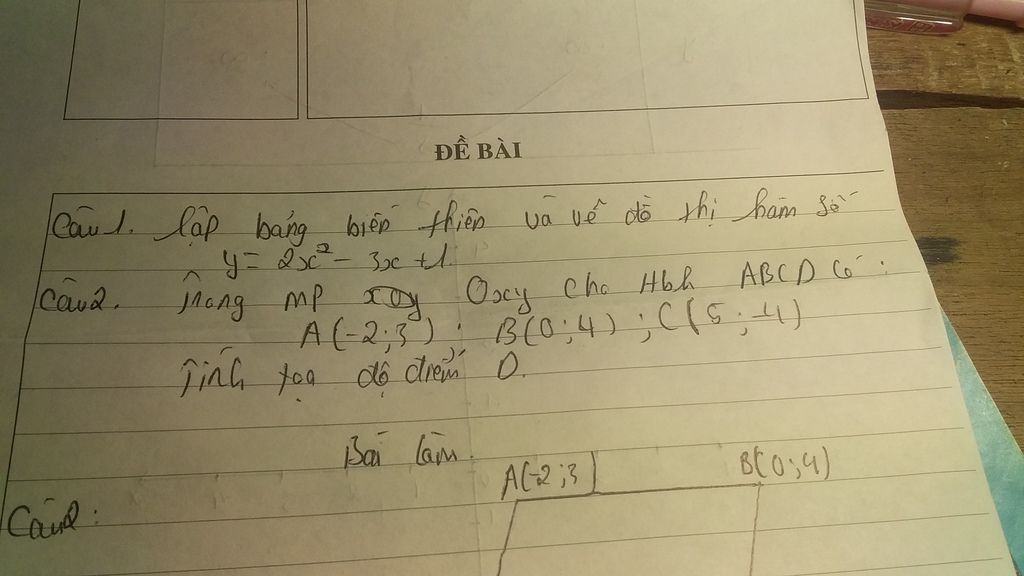 ĐỀ BÀI
Câu 1. Lập bảng biến thiên và vẽ đồ thị hàm số
y = 2x² - 3x + 1.
Câu 2. Trong MP xoy Oxy cho Hbh ABCD có:
A(-2;3); B(0;4); C(5;-4)
Tính tọa độ điểm D.
Bài làm
A(-2;3) B(0;4)
Câu 2: